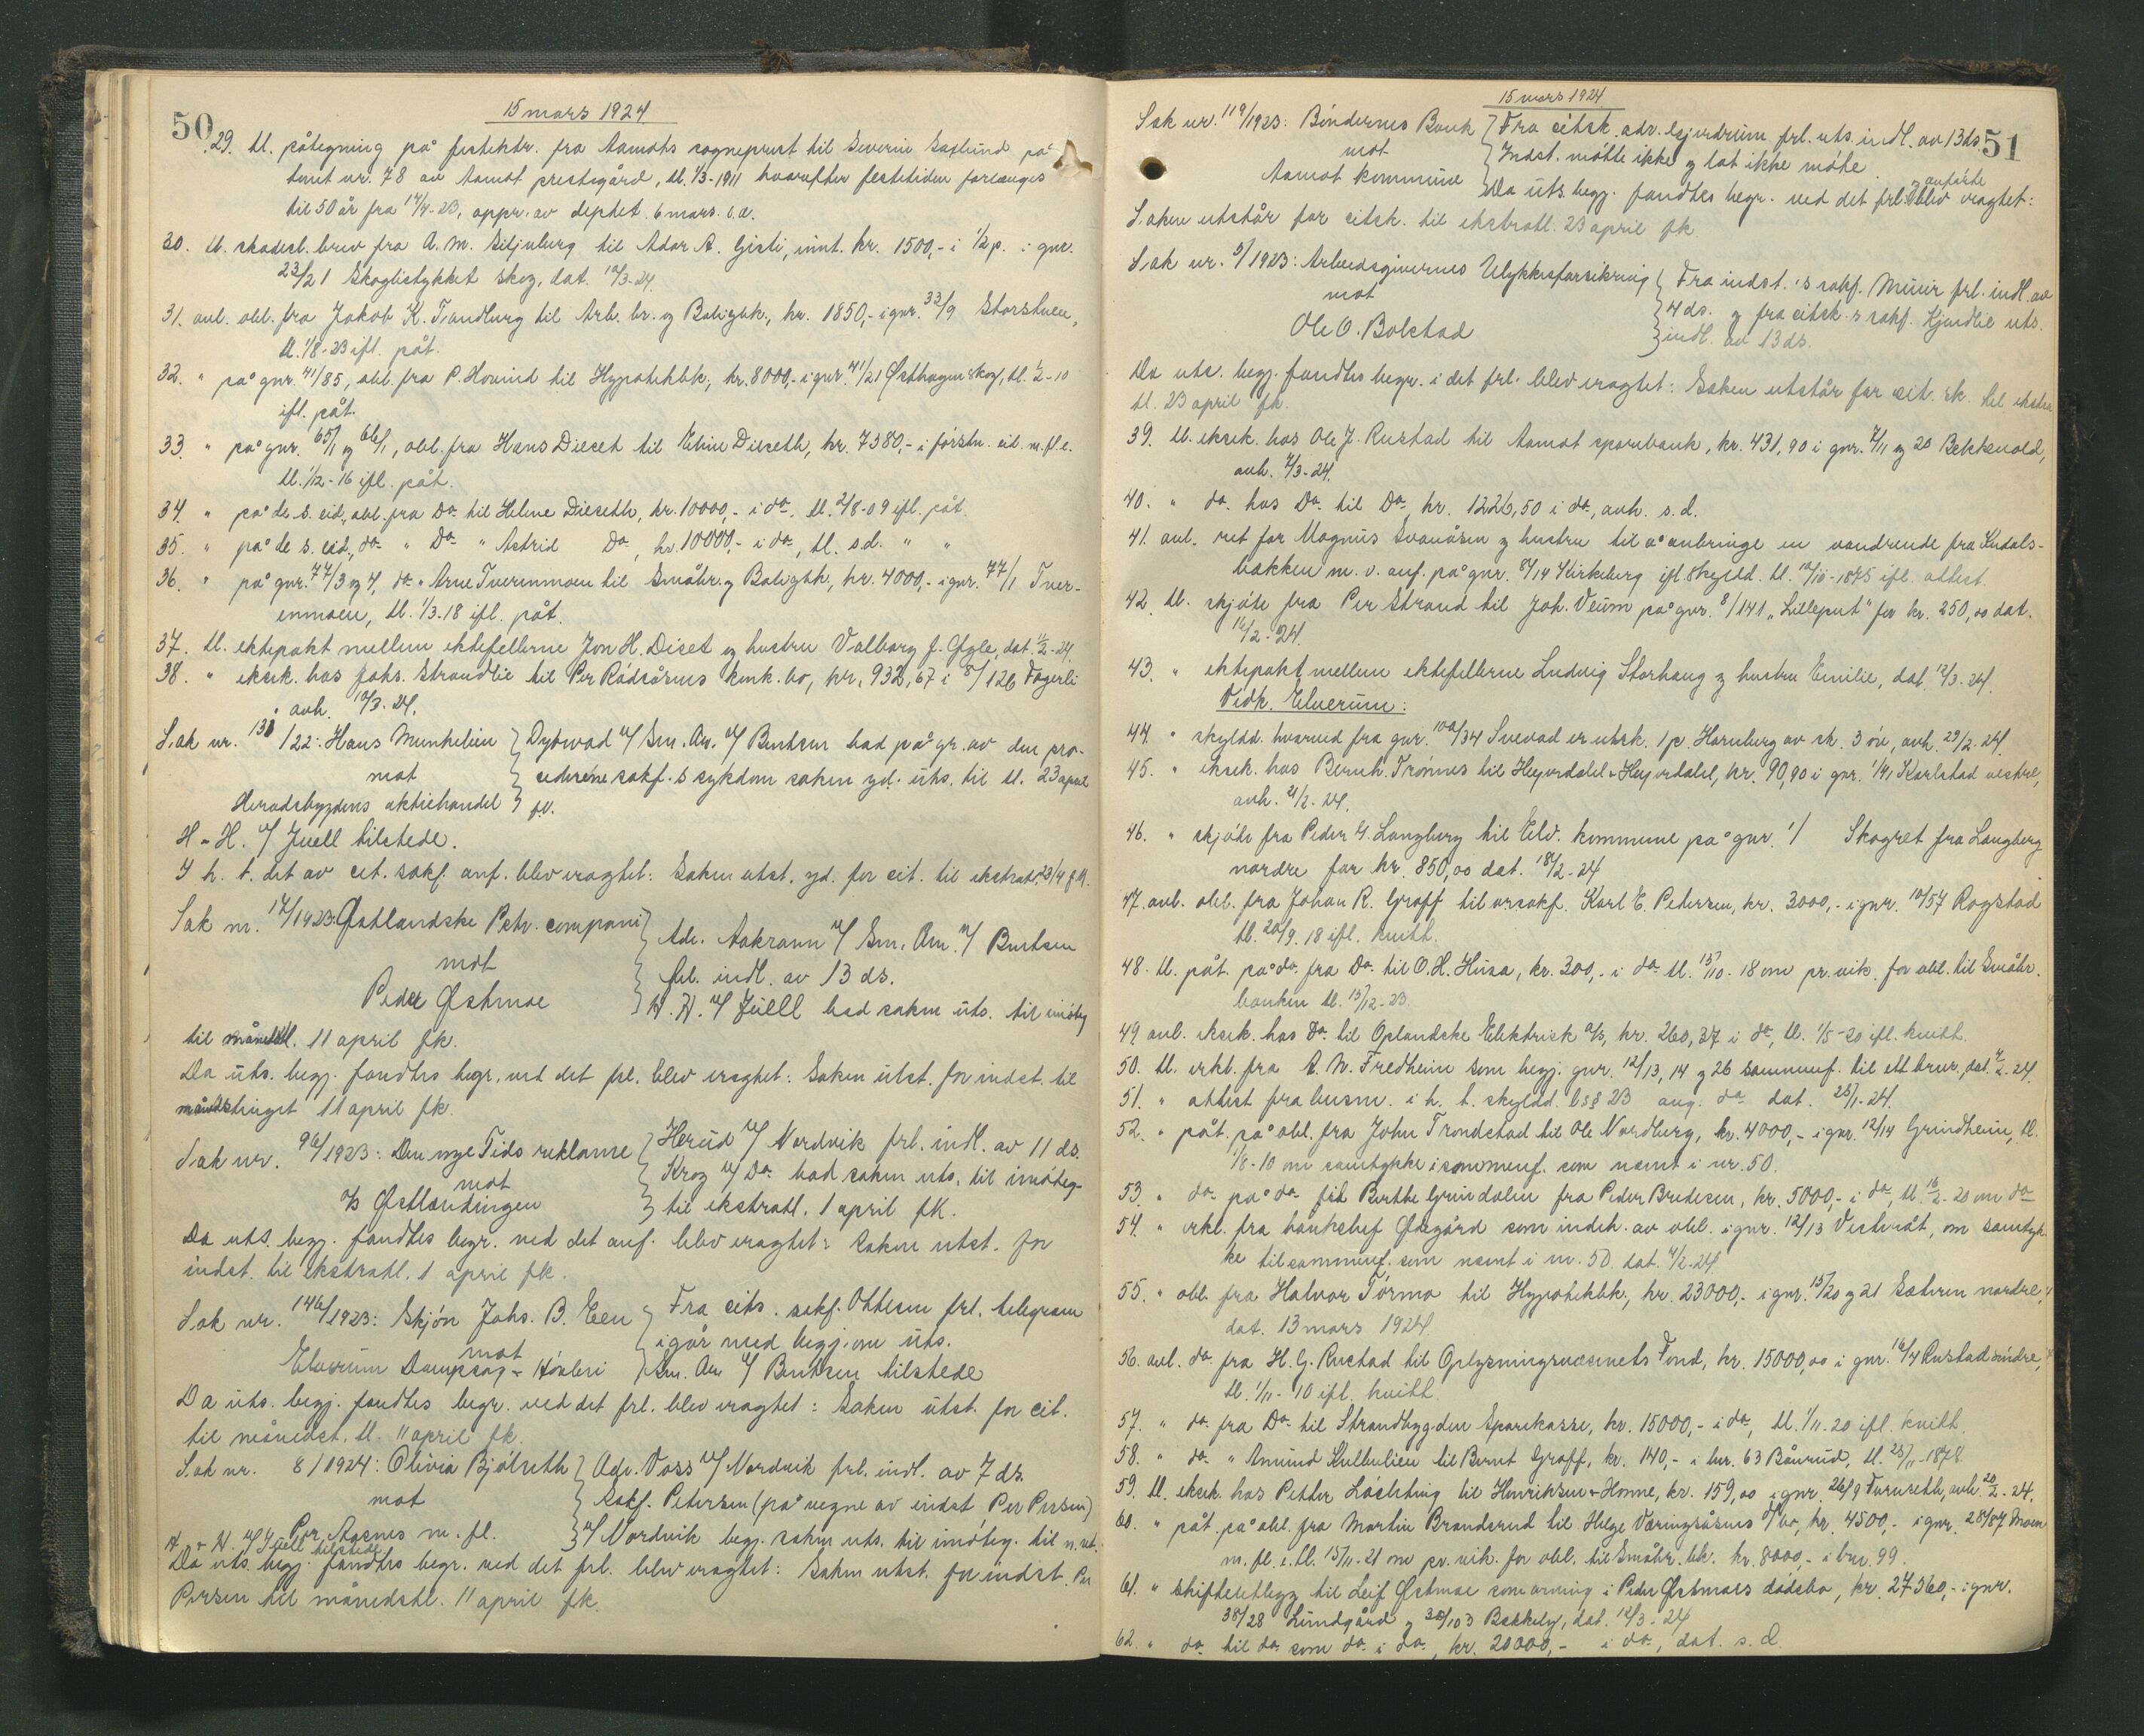 50
15 mars 1924
29. tl. påtegning på festektr. fra Aamots sogneprest til Severin Saxlund på
tomt nr. 78 av Aamot prestegård, tl. 1/3-1911 hvorefter festetiden forlænges
til 50 år fra 14/4-23, appr. av deptet 6 mars d.æ.
30. tl. skadesl. brev fra A. M. Siljuberg til Ador A. Gisti, innt. kr. 1500,- i 1/2 p. i gnr.
23/21 Skoglistykket skog, dat. 12/3-24.
31. avl. obl. fra Jakob K. Tandberg til Arb. br. og Boligbk., kr. 1850,- i gnr. 33/9 Storstuen,
tl. 1/8-23 ifl. påt.
32. " på gnr. 41/85, obl. fra P. Hovind til Hypotekbk., kr. 8000,- i gnr. 41/21 Østhagen skog, tl. 1/2-10
ifl. påt.
33. " på gnr. 65/1 og 66/1, obl. fra Hans Diseth til Eline Diseth, kr. 7380,- i førstn. eid. m. fl. e.
tl. 1/12-16 ifl. påt.
34. " på de s. eid., obl. fra Do. til Helene Diseth, kr. 10000,- i do. tl. 2/8-09 ifl. påt.
35. " på de s. eid., do. " Do. " Astrid Do., kr. 10000,- i do., tl. s.d. " "
36. " på gnr. 77/3 og 4, do. " Arne Tverenmoen til Småbr. og Boligbk., kr. 4000,- i gnr. 77/1 Tver-
enmoen, tl. 1/3-18 ifl. påt.
37. tl. ektepakt mellem ektefellerne Jon H. Diset og hustru Valborg f. Gegle, dat. 1/2-24.
38. " eksek. hos Johs. Strandlie til Per Rådsåsens konk. bo, kr. 932,67 i 8/126 Fagerli
avh. 12/3-24.
Sak nr. 138/22: Hans Munkelien
mot
Heradsbygdens aktiehandel
Dybwad v/ Sm. Am. v/ Bentsen bad på gr. av den pro-
sederende sakf.s sykdom saken yd. uts. til tl. 23 april
f.k.
H - H. v/ Juell tilstede.
I h. t. det av cit. sakf. anf. blev eragtet: Saken utst. yd. for cit. til ekstratl. 23/4 f.k.
Sak nr. 14/1923: Østlandske Petr. compani
mot
Peder Østmoe
Adv. Aakrann v/ Sm. Am. v/ Bentsen
frl. indl. av 13 ds.
H. H. v/ Juell bad saken uts. til imøteg
til månedstl. 11 april fk.
Da uts. begj. fandtes begr. ved det frl. blev eragtet: Saken utst. for indst. til
månedstinget 11 april fk.
Sak nr. 96/1923: Den nye Tids reklame
mot
A/s Østlendingen
Herud v/ Nordvik frl. indl. av 11 ds.
Krog v/ Do. bad saken uts. til imøteg-
til ekstratl. 1 april fk.
Da uts. begj. fandtes begr. ved det anf. blev eragtet: Saken utst. for
indst. til ekstratl. 1 april fk.
Sak nr. 146/1923: Skjøn Johs. B. Een
mot
Elverum Dampsag & Høvleri
Fra cits. sakf. Ottesen frl. telegram
igår med begj. om uts.
Sm. Am v/ Bentsen tilstede
Da uts. begj. fandtes begr. ved det frl. blev eragtet: Saken utst. for cit.
til månedst. tl. 11 april fk.
Sak nr. 8/1924: Olivia Bjølseth
mot
Per Aasnes m. fl.
Adv. Voss v/ Nordvik frl. indl. av 7 ds.
Sakf. Petersen (på vegne av indst. Per Persen)
v/ Nordvik begj. saken uts. til imøteg. til n. rt.
H - H. v/ Juell tilstede
Da uts. begj. fandtes begr. ved det frl. blev eragtet: Saken utst. for indst. Per
Persen til månedstl. 11 april fk.
51
15 mars 1924
Sak nr. 119/1923: Bøndernes Bank
mot
Aamot kommune
Fra citsk. adv. Gjerdrum frl. uts. indl. av 13 ds.
Indst. møtte ikke og lot ikke møte.
Da uts. begj. fandtes begr. ved det frl. og anførte blev eragtet:
Saken utstår for citsk. til ekstratl. 23 april fk.
Sak nr. 5/1923: Arbeidsgivernes Ulykkesforsikring
mot
Ole O. Bolstad
Fra indst.'s sakf. Minir frl. indl. av
4 ds. og fra citsk.s sakf. Kjendlie uts.
indl. av 13 ds.
Da uts. begj. fandtes begr. i det frl. blev eragtet: Saken utstår for cit. sk. til ekstra
tl. 23 april fk.
39. tl. eksek. hos Ole J. Rustad til Aamot sparebank, kr. 431,90 i gnr. 7/11 og 20 Bekkevold,
avh. 7/3-24.
40. " do. hos Do. til Do., kr. 1226,50 i do., avh. s. d.
41. avl. ret for Magnus Svenåsen og hustru til å anbringe en vandrende fra Kudals-
bakken m. v. anf. på gnr. 8/14 Kirkeberg ifl. Skyldd. tl. 12/10-1875 ifl. attest.
42. tl. skjøte fra Per Strand til Joh. Veum på gnr. 8/141 "Lilleput" for kr. 250,00 dat.
16/2-24.
43. " ektepakt mellem ektefellerne Ludvig Storhaug og hustru Emilie, dat. 12/3-24.
Vedk. Elverum:
44. " skyldd. hvorved fra gnr. 100/34 Svevad er utsk. 1 p. Hornberg av sk. 3 øre, avh. 29/2-24.
45. " eksek. hos Bernh. Trønnes til Heyerdahl & Heyerdahl, kr. 90,90 i gnr. 1/41 Karlstad vestre,
avh. 21/2-24.
46. " skjøte fra Peder G. Langberg til Elv. kommune på gnr. 1/ Skogret fra Langberg
nordre for kr. 850,00 dat. 18/2-24
47. avl. obl. fra Johan R. Groff til orsakf. Karl E. Petersen, kr. 3000,- i gnr. 10/57 Rogstad
tl. 20/9-18 ifl. kvitt.
48. tl. påt. på do. fra Do. til O. H. Husa, kr. 300,- i do. tl. 15/10-18 om pr. vik. for obl. til Småbr.
banken tl. 15/12-23.
49 avl. eksek. hos do. til Oplandske Elektrisk A/s, kr. 260,37 i do., tl. 1/5-20 ifl. kvitt.
50. tl. erkl. fra A. N. Fredheim som begj. gnr. 12/13, 14 og 26 sammenf. til ett brnr, dat. 4/2-24.
51. " attest fra busm. i h. t. skyldd. l. §§ 23 ang. do. dat. 25/1-24.
52. " påt. på obl. fra John Trondstad til Ole Nordberg, kr. 4000,- i gnr. 12/14 Grindheim, tl.
1/8-10 om samtykke i sammenf. som nevnt i nr. 50.
53. " do. på do. fid Berthe Grindalen fra Peder Bredesen, kr. 5000,- i do., tl. 16/2-20 om do.
54. " erkl. fra bankchef Øvegård som indeh. av obl. i gnr. 12/13 Vestvåt, om samtyk
ke til sammenf. som nevnt i nr. 50. dat. 4/2-24
55. " obl. fra Halvor Tørmo til Hypotekbk., kr. 23000,- i gnr. 15/20 og 21 Sæteren nordre,
dat. 13 mars 1924.
56. avl. do. fra H. G. Rustad til Oplysningsvæsenets Fond, kr. 15000,00 i gnr. 16/4 Rustad søndre,
tl. 1/11-10 ifl. kvitt.
57. " do. fra Do. til Strandbygden Sparekasse, kr. 15000,- i do., tl. 1/11-20 ifl. kvitt.
58. " do. " Amund Kulbulien til Bernt Groff, kr. 140,- i lnr. 63 Bånrud, tl. 25/11-1878.
59. tl. eksek. hos Petter Løsletting til Henriksen & Honne, kr. 159,00 i gnr. 26/9 Furuseth, avh. 20/2-24.
60. " påt. på obl. fra Martin Brandsrud til Helge Væringsåsens d/bo, kr. 4500,- i gnr. 28/87 Moen
m. fl. e. tl. 15/11-21 om pr. vik. for obl. til Småbr. bk. kr. 8000,- i bnr. 99.
61. " Skifteutlegg til Leif Østmoe som arving i Peder Østmoes dødsbo, kr. 27560,- i gnr.
38/28 Lundgård og 38/103 Bakkely, dat. 12/3-24
62. " do. til do. som do. i do., kr. 20000,- i do., dat. s. d.